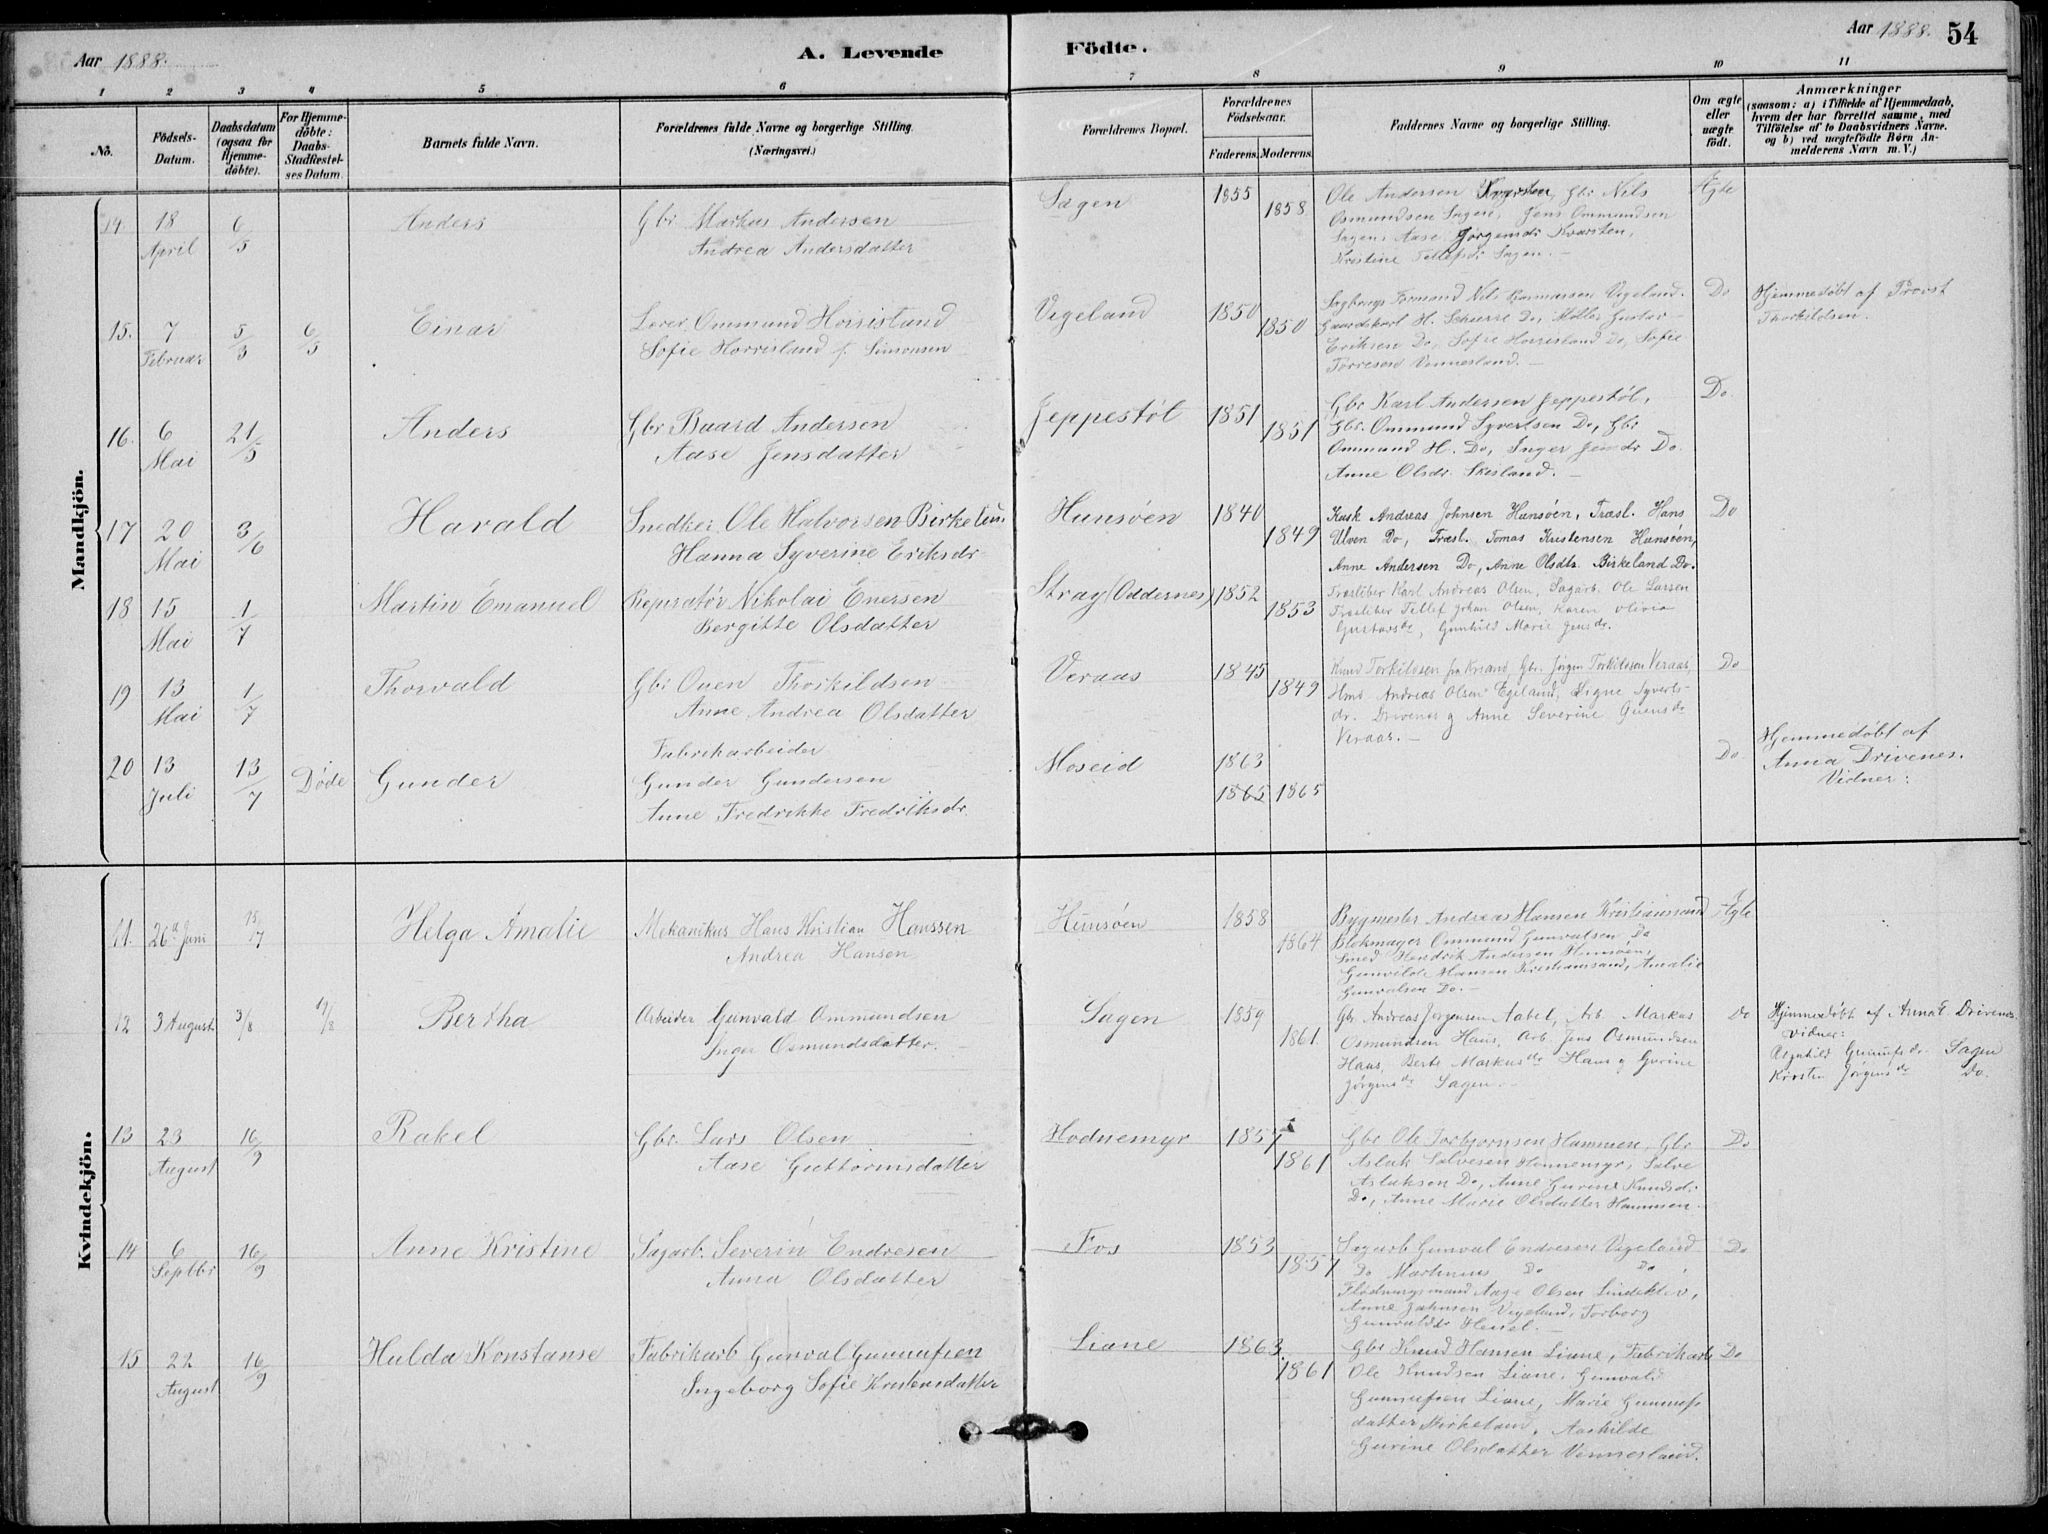 Aar 1888. A. Levende Födte. Aar 1888. 54
1 2 3 4 5 6 7 8 9 10 11
No.
Födsels-
Datum.
Daabsdatum
(ogsaa for
Hjemme-
døbte).
For Hjemme-
døbte:
Daabs-
Stadfæstel-
ses Datum.
Barnets fulde Navn.
Forældrenes fulde Navne og borgerlige Stilling.
(Næringsvei.)
Forældrenes Bopæl.
Forældrenes
Födselsaar.
Faderens. Moderens.
Faddernes Navne og borgerlige Stilling.
Om ægte
eller
uægte
födt.
Anmærkninger
(saasom: a) i Tilfælde af Hjemmedaab,
hvem der har forrettet samme, med
Tilföielse af to Daabsvidners Navne,
og b) ved uægtefödte Börn An-
melderens Navn m. V.)
Mandkjön.
14. 18 April 6/5 Anders
Gbr. Markus Andersen
Andrea Andersdatter
Sagen 1855 1858
Ole Andersen Kvarsten, Gbr. Nils
Osmundsen Sagen, Jens Ommundsen
Sagen, Aase Jørgensdr Kvarsten,
Kristine Tellefsdr. Sagen.
Ægte
15. 7 Februar 5/3 6/5 Einar
Lærer Ommund Horrisland
Sofie Horrisland f. Simonsen
Vigeland 1850 1850
Sagbrugs Formand Nils Rasmussen Vigeland.
Gaardskarl H. Scheerre Do, Møller Gustav
Eriksen Do, Sofie Horrisland Do, Sofie
Torresen Vennesland.
Do
Hjemmedøbt af Provst
Thorkildsen.
16. 6 Mai 21/5 Anders
Gbr Baard Andersen
Aase Jensdatter
Jeppestøl 1851 1851
Gbr Karl Andersen Jeppestøl,
Gbr. Ommund Syvertsen Do, Gbr
Ommund H. Do, Inger Jensdr Do.
Anne Olsdr. Skisland.
Do
17 20 Mai 3/6 Harald
Snedker Ole Halvorsen Birkelun
Hanna Syverine Eriksdr
Hunsøen 1840 1849
Kusk Andreas Johnsen Hunsøen, Træsl. Hans
Ulven Do, Træsl. Tomas Kristensen Hunsøen,
Anne Andersen Do, Anne Olsdtr. Birkeland Do.
Do
18 15 Mai 1/7 Martin Emanuel
Repratør Nikolai Enersen
Bergitte Olsdatter
Stray (Oddernes) 1852 1853
Træsliber Karl Andreas Olsen, Sagarb. Ole Larsen
Træsliber Tellef Johan Olsen, Karen Olivia
Gustavsdr, Gunhild Marie Jensdr.
19 13 Mai 1/7 Thorvald
Gbr Ouen Thorkildsen
Anne Andrea Olsdatter
Veraas 1845 1849
Knud Torkildsen fra Krsand, Gbr. Jørgen Torkildsen Veraas,
Hmd Andreas Olsen Egeland, Signe Syverts-
dr. Drivenes g Anne Severine Ouensdr
Veraas.
Do
20 13 Juli 13/7 Døde Gunder
Fabrikarbeider
Gunder Gundersen
Anne Fredrikke Fredriksdr.
Moseid 1863
1865 1865
Do
Hjemmedøbt af
Anna Drivenes.
Vidner:
Kvindekjön.
11. 26 Juni 15/7 Helga Amalie
Mekanikus Hans Kristian Hanssen
Andrea Hansen
Hunsøen 1858 1864
Bygmester Andreas Hansen Kristianssand
Blokmager Ommund Gunvalsen Do
Smed Hendrik Andersen Hunsøen,
Gunvilde Hansen Kristianssand, Amalie
Gunvalsen Do.
Ægte
12 3 August 3/8 19/8 Bertha
Arbeider Gunvald Ommundsen
Inger Osmundsdatter.
Sagen 1859 1861
Gbr Andreas Jørgensen Aabel, Arb. Markus
Osmundsen Haus, Arb. Jens Osmundsen
Haus, Berte Markusdr Haus g Gurine
Jørgensdr Sagen.
Do
Hjemmedøbt af Anna T. Drivenes
Vidner:
Gunufsdr. Sagen
Kirsten Jørgensdr Do.
13 23 August 16/9 Rakel
Gbr. Lars Olsen
Aase Guttormsdatter
Hodnemyr 1857 1861
Gbr Ole Torbjørnsen Hammen, Gbr
Aslak Salvesen Honnemyr, Salve
Aslaksen Do, Anne Gurine Knudsdr
Do, Anne Marie Olsdatter Hammen.
Do
14 6 Septbr 16/9 Anne Kristine
Sagarb. Severin Endresen
Anna Olsdatter
Fos 1853 1857
Sagarb Gunval Endresen Vigeland
Do Martinus Do Do,
Flødningsmand Aage Olsen Lindeklev,
Anne Johnsen Vigeland, Torborg
Gunvaldsdr Heisel.
Do
15 22 August 16/9 Hulda Konstanse
Fabrikarb Gunval Gunnufsen
Ingeborg Sofie Kristensdatter
Liane 1863 1861
Gbr Knud Hansen Liane, Fabrikarb
Ole Knudsen Liane, Gunvald
Gunnufsen Liane, Marie Gunnufs
datter Birkeland, Aashilde
Gurine Olsdatter Vennesland.
Do